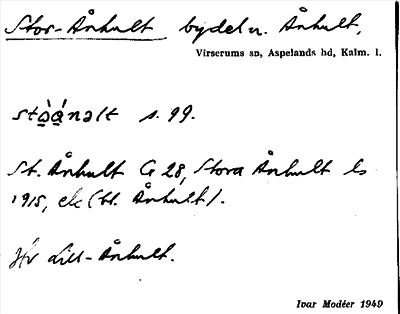 Stor-Ånhult bydel u. Ånhult,
Virserums sn, Aspelands hd, Kalm. l.
stò̱á̱nəlt s. 99.
St. Ånhult G 28, Stora Ånhult ls
1915, ek (bl. Ånhult).
Hv Lill-Ånhult.
Ivar Modéer 1949